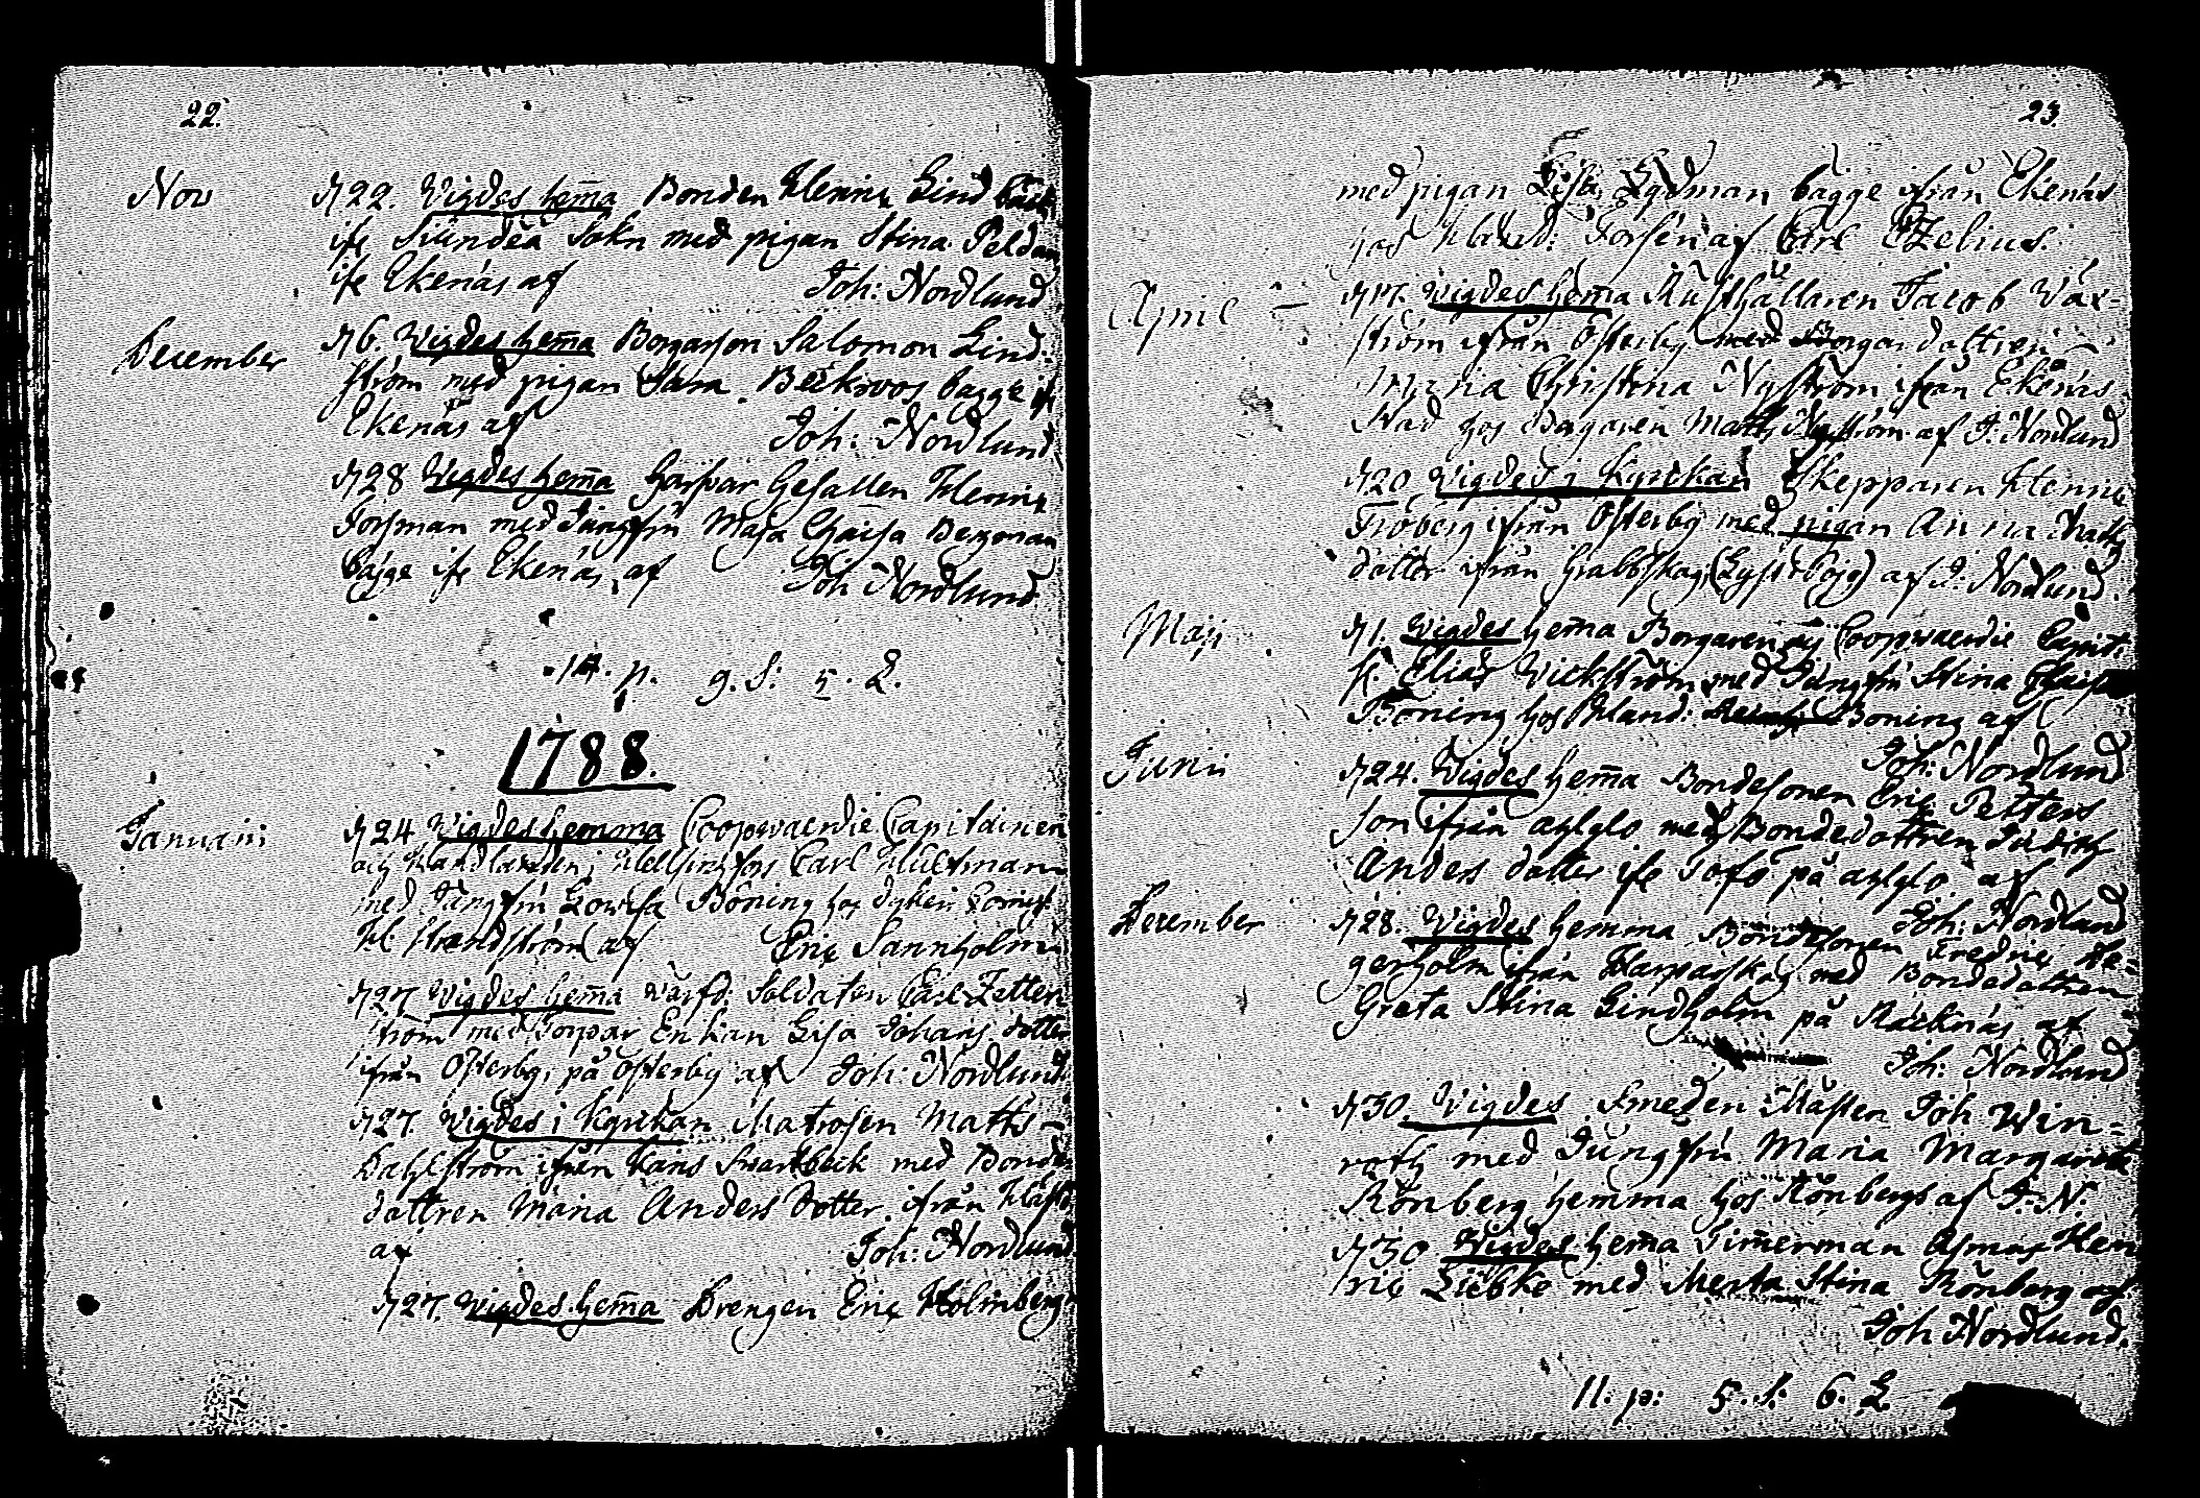 22.
Nov d 22. Vigdes hem̄a Bonden Henric Lind
ifr Siundeå Sokn med pigan Stina Peldan
ifr Ekenäs af Joh: Nordlund
December d 6. Vigdes hem̄a Borgarson Salomon Lind-
ström med pigan Sara Beckroos bägge ifr
Ekenäs af Joh: Nordlund
d 28 Vigdes hem̄a Gesallen Henric
Forsman med Jungfru Maja Caisa Bergman
bägge ifr Ekenäs af Joh Nordlund
14. p. 9. S: 5. L.
1788.
Januarii d 24 Vigdes hemma Coopvaerdie Capitainen
och Handlanden i Hellsingfors Carl Hultman
med Jungfru Lovisa Böning hos
H: Strandström af Eric Sannholm
d 27 Vigdes hem̄a Soldaten Carl Zetter
ström med Enkan Lisa Johans dotter
ifrån Österby, på Österby af Joh: Nordlund
d 27. Vigdes i Kyrkan Matrosen Matts
Dahlström ifrån Svartbäck med Bonde
dottren Maria Anders Dotter ifrån
af Joh: Nordlund
d 27. Vigdes hem̄a Drengen Eric Holmberg
23.
med pigan Lisa Lydman bägge ifrån Ekenäs
hos Forsén af Carl Ezelius.
April d 17. Vigdes hem̄a Rusthållaren Jacob Wax-
ström ifrån Österby med Borgardottren
Maria Christina Nyström ifrån Ekenäs
Stad hos Borgaren Matts Nyström af J. Nordlund
d 20 Vigdes i Kyrkan Skepparen Henric
Fröberg ifrån Österby med pigan Anna Matts
dotter ifrån Grabbskog af J: Nordlund.
Maji d 1. Vigdes hem̄a Borgaren och Coopvaerdie Capit:
H. Elias Wickström med Jungfru Stina Caisa
Böning hos Hland: Böning af
Joh: Nordlund
Junii d 24. Vigdes hem̄a Bondesonen Eric Petters
son ifrån med Bondedottren Judith
Anders dotter ifr på af
Joh: Nordlund
December d 28. Vigdes hemma Bondesonen Fredric He-
gerholm ifrån Harparskog med Bondedottren
Greta Stina Lindholm på af
Joh: Nordlund
d 30. Vigdes Smeden Mästen Joh Win-
roth med Jungfru Maria Margareta
Rönberg hemma hos Rönbergs af J. N.
d 30 Vigdes hem̄a Timerman Asmus Hen
ric Liebke med Merta Stina Rönberg af
Joh Nordlund.
11. p: 5. S: 6. L.